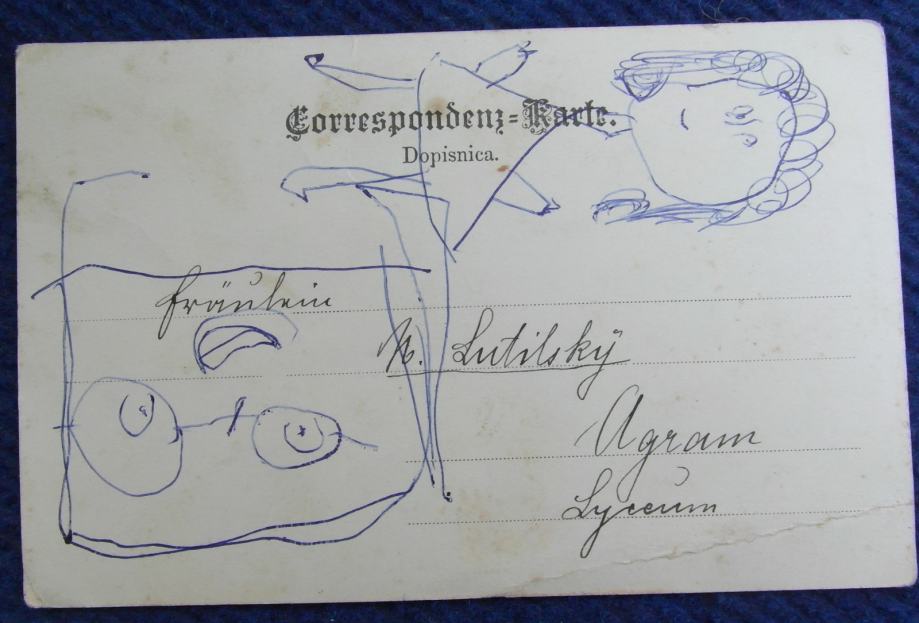 Correspondenz-Karte.
Dopisnica.
Fräulein
N. Lutilskÿ
Agram
Lyceum